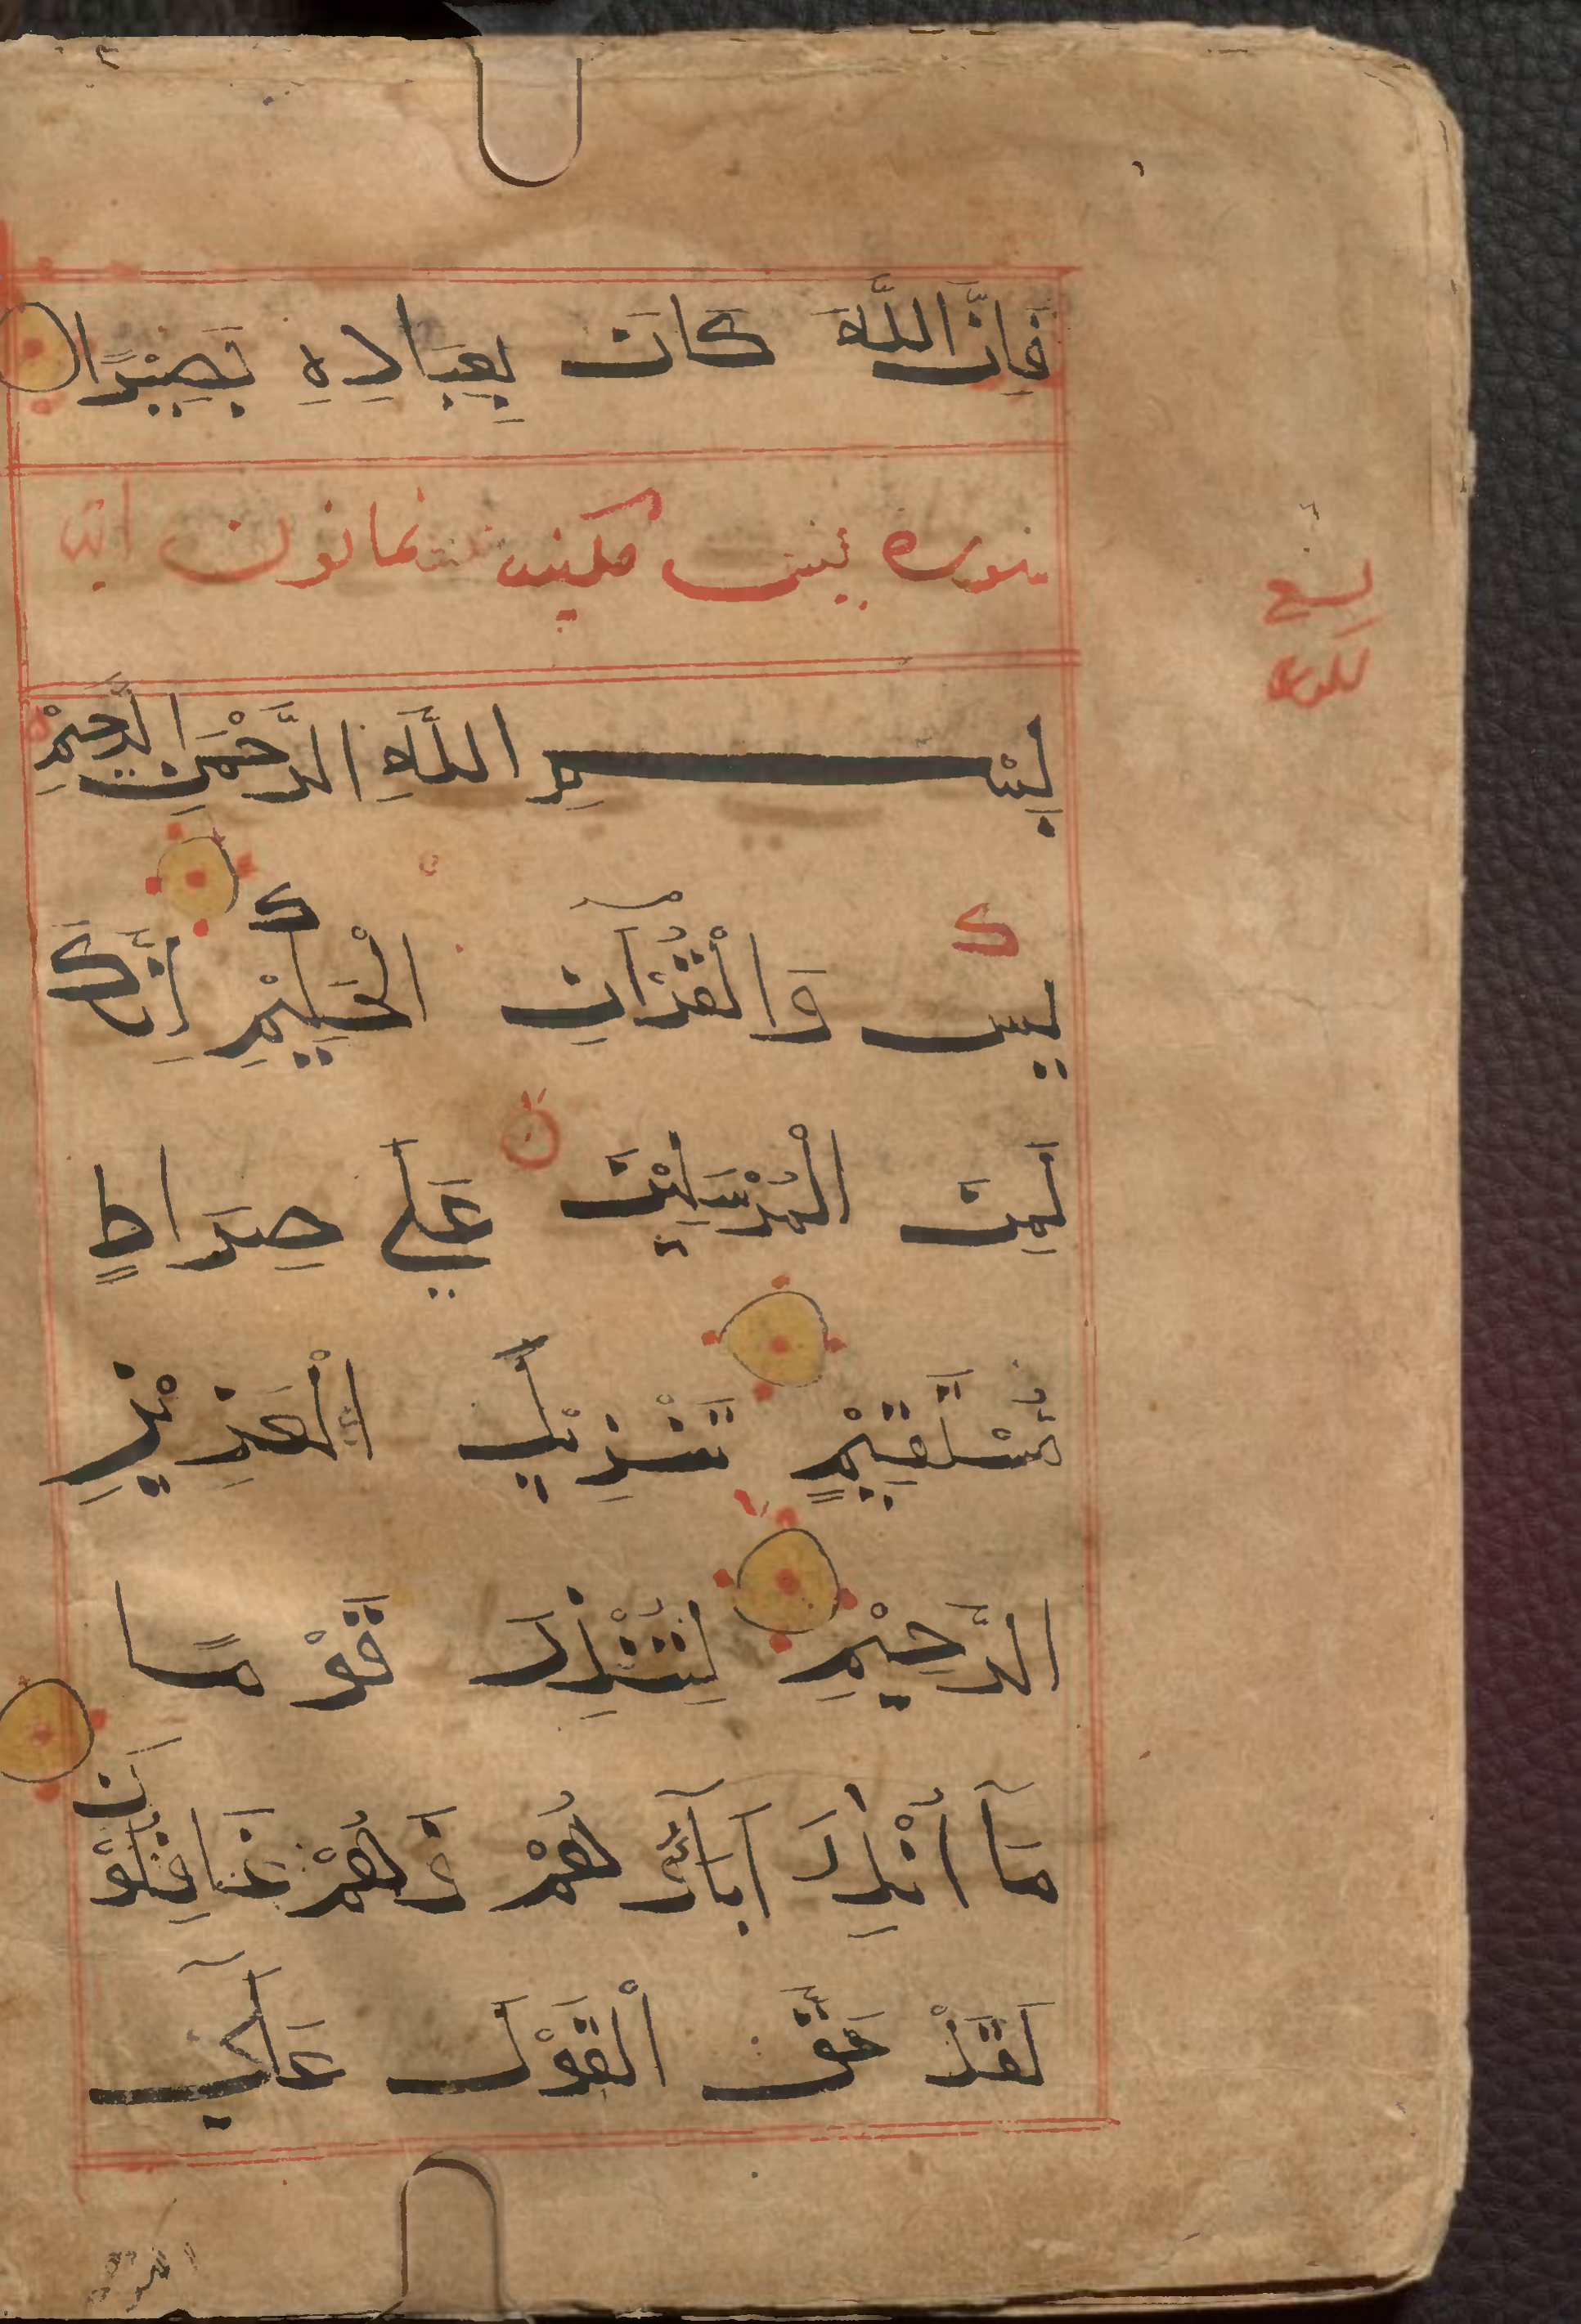 فَاِنَّ اللَّهَ كَانَ بِعِبَادِهِ بَصِيْرًا
سورة يس مكية ثمانون اية
بِسْمِ اللَّهِ الرَّحْمٰنِ الرَّحِيْمِ
يس وَالْقُرْآنِ الْحَكِيْمِ اِنَّكَ
لَمِنَ الْمُرْسَلِيْنَ عَلَي صِرَاطٍ
مُسْتَقِيْمٍ تَنْزِيْلَ الْعَزِيْزِ
الرَّحِيْمِ لِتُنْذِرَ قَوْمًا
مَآ اُنْذِرَ آبَآؤُهُمْ فَهُمْ غَافِلُوْنَ
لَقَدْ حَقَّ الْقَوْلُ عَلَي